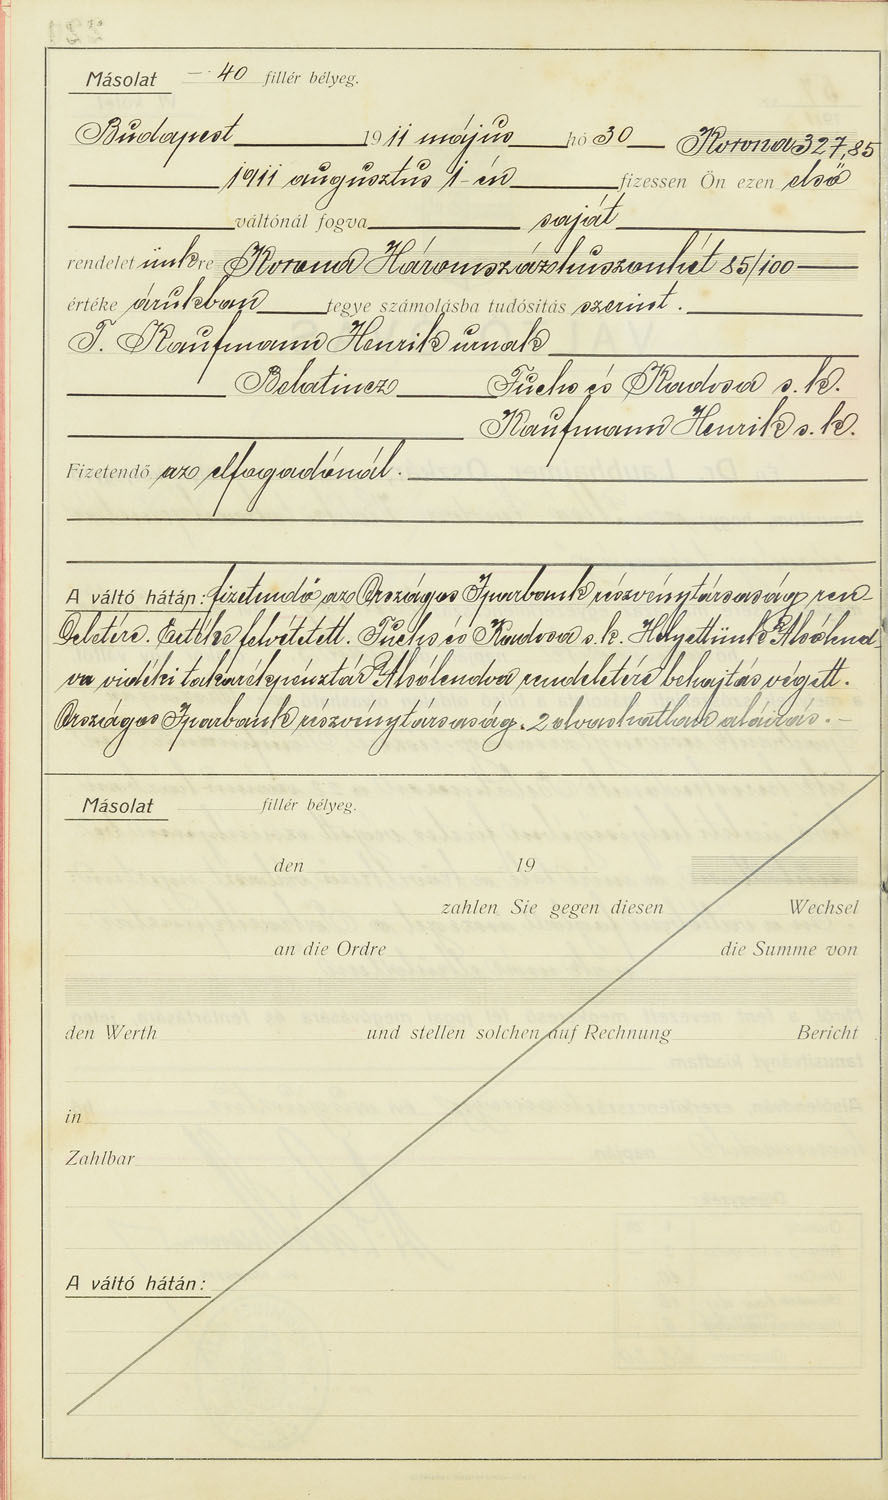 Másolat — 40 fillér bélyeg.
Budapest 1911 május hó 30 Korona 327,85
1911 augusztus 1-én fizessen Ön ezen első
váltónál fogva saját
rendeletünkre Korona Háromszázhuszonhét 85/100
értéke árukban tegye számolásba tudósitás szerint.
T. Kaufmann Henrik urnak
Belatincz Fuchs és Kadosa s. k.
Kaufmann Henrik s. k.
Fizetendő az elfogadónál.
A váltó hátán: fizetendő az Országos Iparbank részvénytársaság ren-
deletére. Értéke felvétetett. Fuchs és Kadosa s. k. Helyettünk Alsólend-
va vidéki takarékpénztár Alsólendva rendeletére behajtás végett.
Országos Iparbank részvénytársaság. 2 olvashatlan aláirás. —
Másolat fillér bélyeg.
den 19
zahlen Sie gegen diesen Wechsel
an die Ordre die Summe von
den Werth und stellen solchen auf Rechnung Bericht
in
Zahlbar
A váltó hátán: